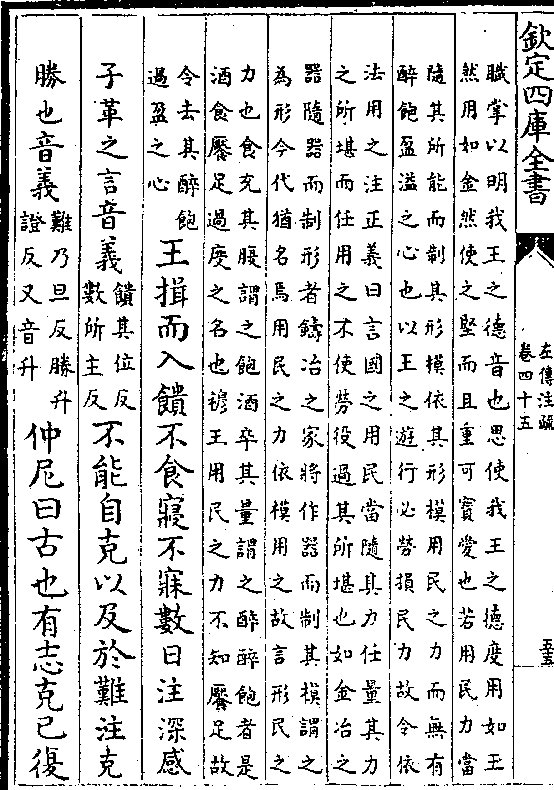 欽定四庫全書
左傳注疏
卷四十五
五五
職掌以明我王之德音也思使我王之德度用如玉
然用如金然使之堅而且重可寳愛也若用民力當
隨其所能而制其形模依其形模用民之力而無有
醉飽盈溢之心也以王之遊行必勞損民力故令依
法用之注正義曰言國之用民當隨其力任量其力
之所堪而任用之不使勞役過其所堪也如金冶之
器隨器而制形者鑄冶之家將作器而制其模謂之
為形今代猶名焉用民之力依模用之故言形民之
力也食充其腹謂之飽酒卒其量謂之醉醉飽者是
酒食饜足過度之名也穆王用民之力不知饜足故
令去其醉飽
過盈之心
王揖而入饋不食寢不寐數日注深感
子革之言音義
饋其位反
數所主反
不能自克以及於難注克
勝也音義
難乃旦反勝升
證反又音升
仲尼曰古也有志克己復